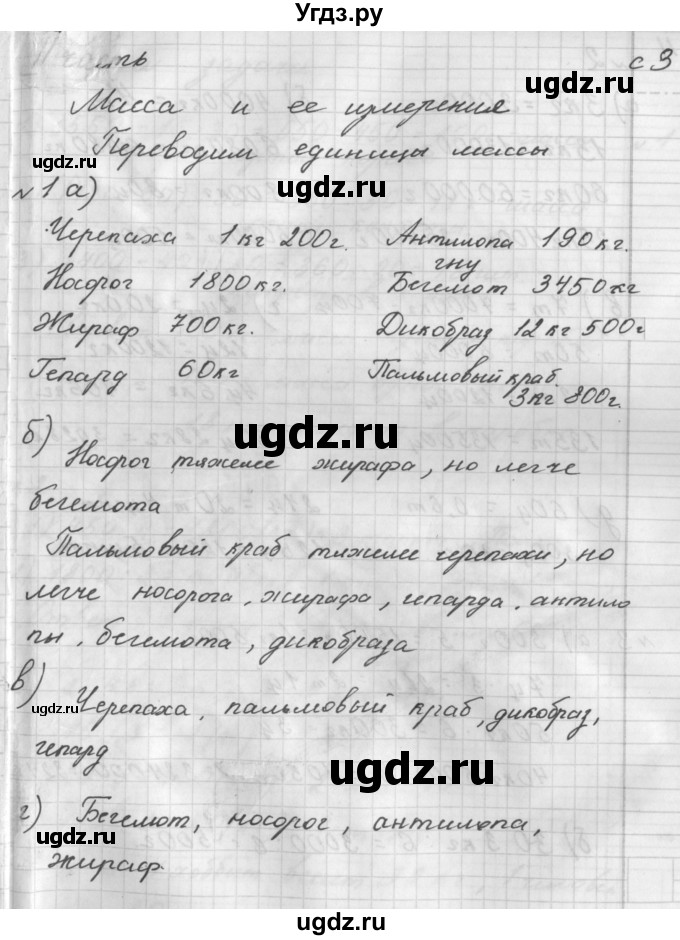 Угдз.ру
с 3
Масса и ее измерения
Переводим единицы массы
№ 1 а)
Черепаха 1 кг 200 г. Антилопа гну 190 кг.
Носорог 1800 кг. Бегемот 3450 кг
Жираф 700 кг. Дикобраз 12 кг 500 г
Гепард 60 кг Пальмовый краб. 3 кг 800 г.
б) Носорог тяжелее жирафа, но легче
бегемота
Пальмовый краб тяжелее черепахи, но
легче носорога, жирафа, гепарда, антило
пы, бегемота, дикобраза
в) Черепаха, пальмовый краб, дикобраз,
гепард
г) Бегемот, носорог, антилопа,
жираф.
ugdz.ru
ugdz.ru
ugdz.ru
ugdz.ru
ugdz.ru
ugdz.ru
ugdz.ru
ugdz.ru
ugdz.ru